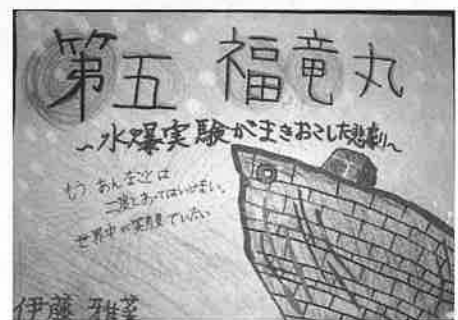 第五 福竜丸
～水爆実験がまきおこした悲劇～
もう あんなことは
二度とあってはいけない。
世界中が笑顔でいたい
伊藤 雅